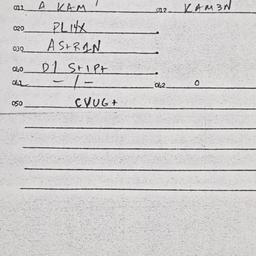 011 A KAM 012 KAM3N
020 PL14X
030 AS+RAN
040 D1 S+1P+
041 - / - 042 0
050 CVUG+